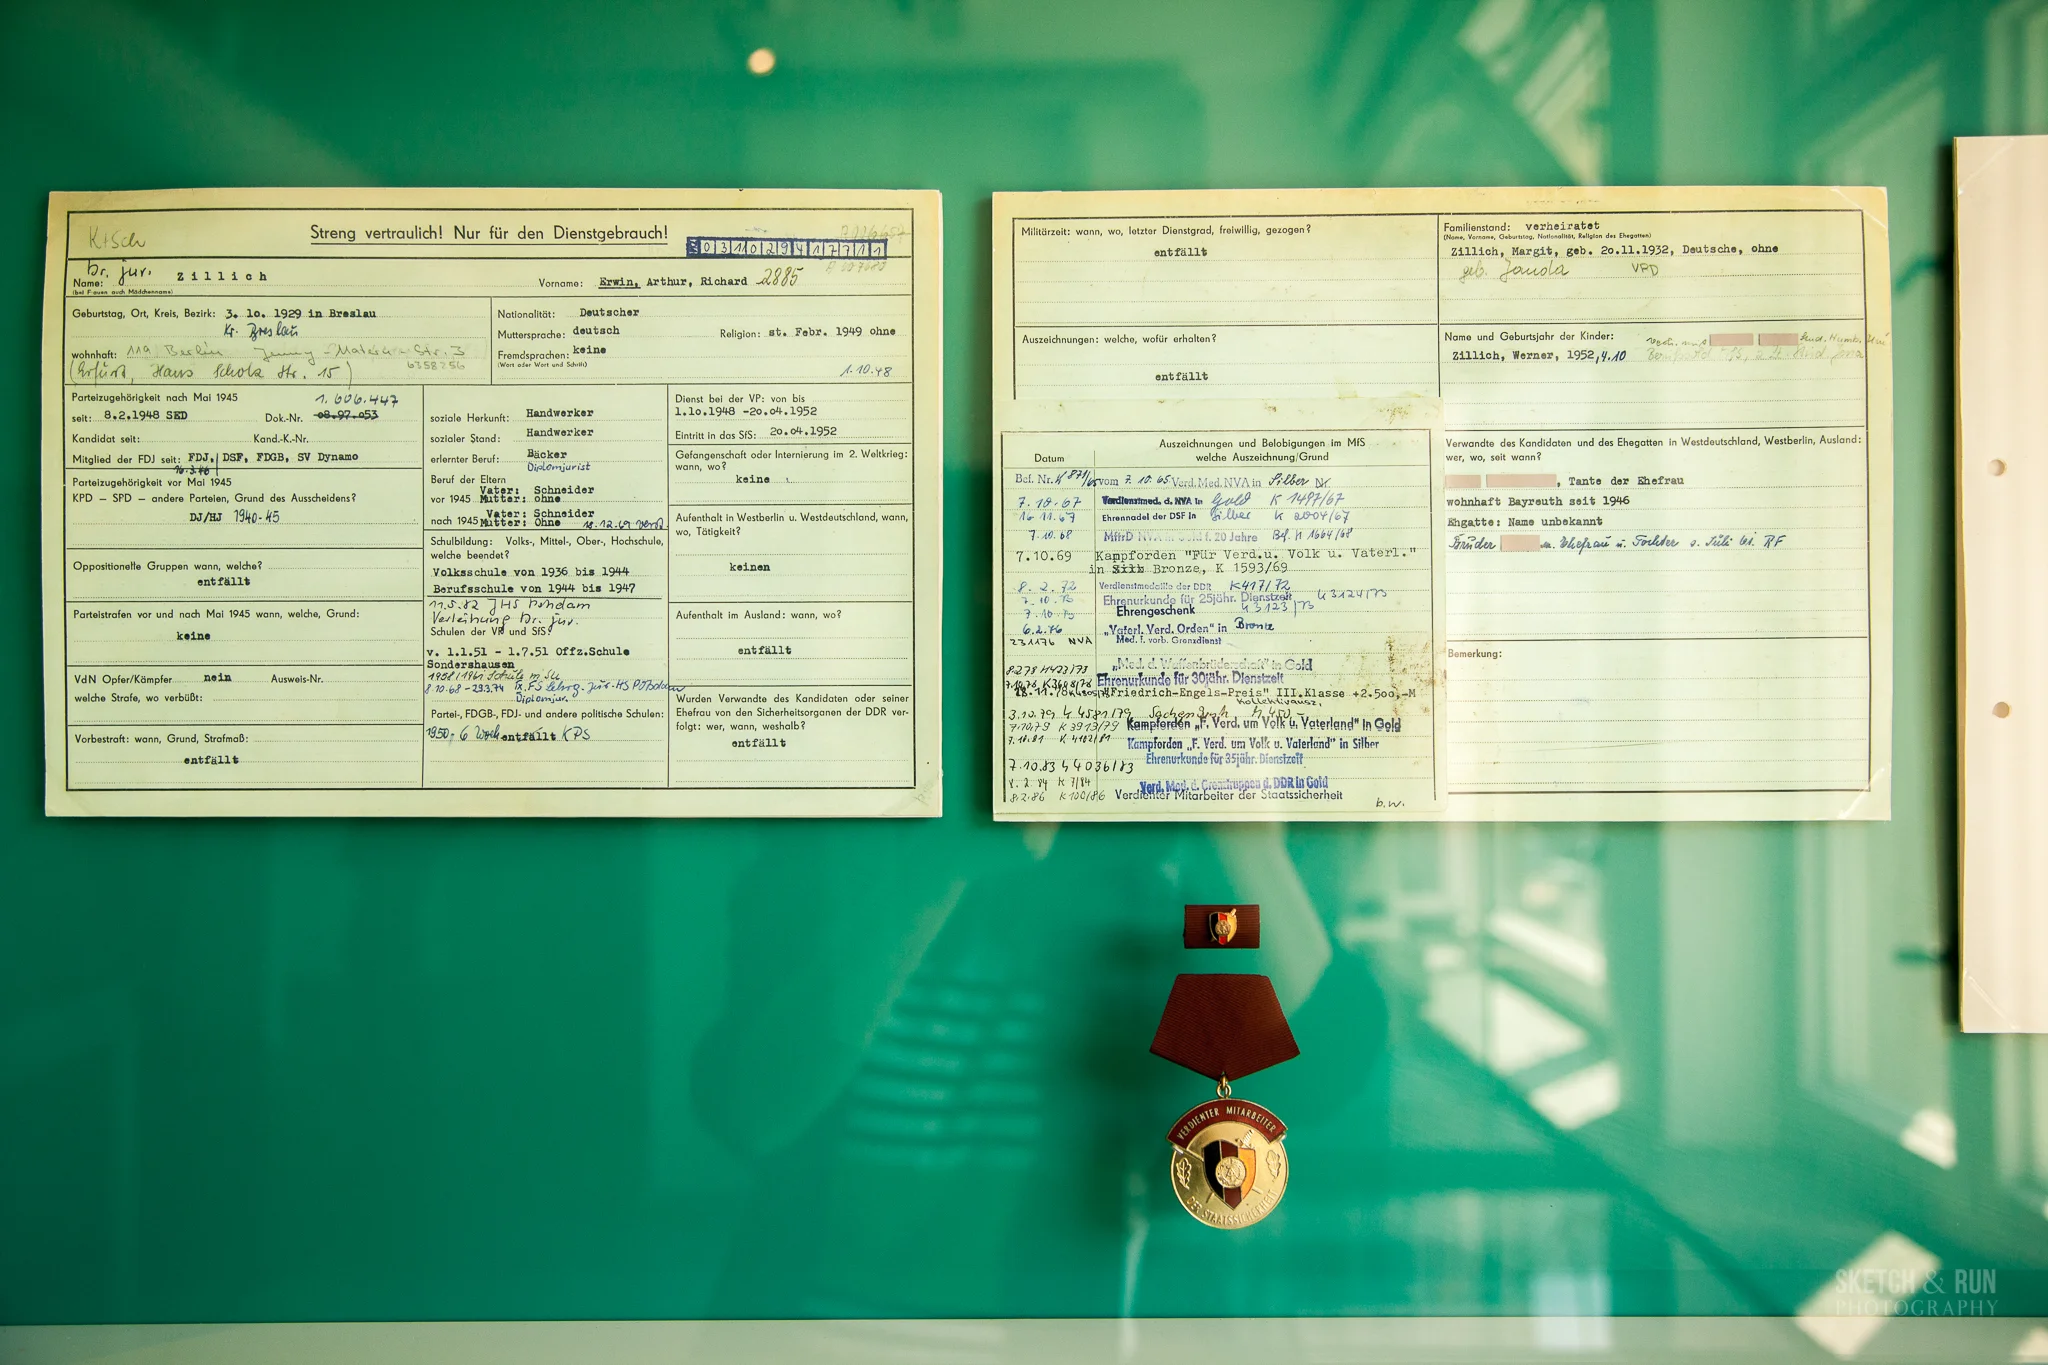 Streng vertraulich! Nur für den Dienstgebrauch!
0 3 1 0 2 9 4 1 7 7 1 1
Dr. jur.
Name: Zillich
(bei Frauen auch Mädchenname)
Vorname: Erwin, Arthur, Richard 2885
Geburtstag, Ort, Kreis, Bezirk: 3. 10. 1929 in Breslau
Kr. Breslau
wohnhaft: 119 Berlin Str. 3
(Erfurt, Hans Scholz Str. 15)
6358256
Nationalität: Deutscher
Muttersprache: deutsch
Religion: st. Febr. 1949 ohne
Fremdsprachen: keine
(Wort oder Wort und Schrift)
1.10.48
Parteizugehörigkeit nach Mai 1945
1.606.447
seit: 8.2.1948 SED Dok.-Nr. 08.97.053
Kandidat seit: Kand.-K.-Nr.
Mitglied der FDJ seit: FDJ, DSF, FDGB, SV Dynamo
16.3.46
Parteizugehörigkeit vor Mai 1945
KPD – SPD – andere Parteien, Grund des Ausscheidens?
DJ/HJ 1940-45
Oppositionelle Gruppen wann, welche?
entfällt
Parteistrafen vor und nach Mai 1945 wann, welche, Grund:
keine
VdN Opfer/Kämpfer nein Ausweis-Nr.
welche Strafe, wo verbüßt:
Vorbestraft: wann, Grund, Strafmaß:
entfällt
soziale Herkunft: Handwerker
sozialer Stand: Handwerker
erlernter Beruf: Bäcker
Diplomjurist
Beruf der Eltern
vor 1945 Vater: Schneider
Mutter: ohne
nach 1945 Vater: Schneider
Mutter: Ohne 18.12.69 verst.
Schulbildung: Volks-, Mittel-, Ober-, Hochschule,
welche beendet?
Volksschule von 1936 bis 1944
Berufsschule von 1944 bis 1947
11.5.82 JHS Potsdam
Verleihung Dr. jur.
Schulen der VP und SfS?
v. 1.1.51 - 1.7.51 Offz.Schule
Sondershausen
1958/1961 Schule
8.10.68 - 29.3.74 Potsdam
Diplomjur.
Partei-, FDGB-, FDJ- und andere politische Schulen:
1950, 6 Woch entfällt KPS
Dienst bei der VP: von bis
1.10.1948 -20.04.1952
Eintritt in das SfS: 20.04.1952
Gefangenschaft oder Internierung im 2. Weltkrieg:
wann, wo?
keine
Aufenthalt in Westberlin u. Westdeutschland, wann,
wo, Tätigkeit?
keinen
Aufenthalt im Ausland: wann, wo?
entfällt
Wurden Verwandte des Kandidaten oder seiner
Ehefrau von den Sicherheitsorganen der DDR ver-
folgt: wer, wann, weshalb?
entfällt
Militärzeit: wann, wo, letzter Dienstgrad, freiwillig, gezogen?
entfällt
Auszeichnungen: welche, wofür erhalten?
entfällt
Auszeichnungen und Belobigungen im MfS
Datum welche Auszeichnung/Grund
Bef. Nr. K 871/65 vom 7.10.65 Verd. Med. NVA in Silber Nr.
7.10.67 Verdienstmed. d. NVA in Gold K 1497/67
16.11.67 Ehrennadel der DSF in Silber K 2004/67
7.10.68 20 Jahre Bef. K 1664/68
7.10.69 Kampforden "Für Verd.u. Volk u. Vaterl."
in Silb Bronze, K 1593/69
8.2.72 Verdienstmedaille der DDR K417/72
7.10.73 Ehrenurkunde für 25jähr. Dienstzeit K 3124/73
7.10.73 Ehrengeschenk K 3123/73
6.2.76 „Vaterl. Verd. Orden" in Bronze
231176 NVA Med. f. vorb. Grenzdienst
„Med. d. Waffenbrüderschaft" in Gold
Ehrenurkunde für 30jähr. Dienstzeit
"Friedrich-Engels-Preis" III.Klasse +2.500,-M
Kollektivausz.
3.10.79 K 4581/79
7.10.79 K 3913/79 Kampforden „F. Verd. um Volk u. Vaterland" in Gold
7.10.81 K 4102/81 Kampforden „F. Verd. um Volk u. Vaterland" in Silber
Ehrenurkunde für 35jähr. Dienstzeit
7.10.83 K 4036/83
8.2.84 K 7/84 Verd. Med. d. Grenztruppen d. DDR in Gold
8.2.86 K 100/86 Verdienter Mitarbeiter der Staatssicherheit
b.w.
Familienstand: verheiratet
(Name, Vorname, Geburtstag, Nationalität, Religion des Ehegatten)
Zillich, Margit, geb. 20.11.1932, Deutsche, ohne
geb. Janda
Name und Geburtsjahr der Kinder:
Zillich, Werner, 1952, 4.10
Verwandte des Kandidaten und des Ehegatten in Westdeutschland, Westberlin, Ausland:
wer, wo, seit wann?
, Tante der Ehefrau
wohnhaft Bayreuth seit 1946
Ehgatte: Name unbekannt
Bruder Ehefrau u. Tochter
Bemerkung:
VERDIENTER MITARBEITER
DER STAATSSICHERHEIT
SKETCH & RUN
PHOTOGRAPHY